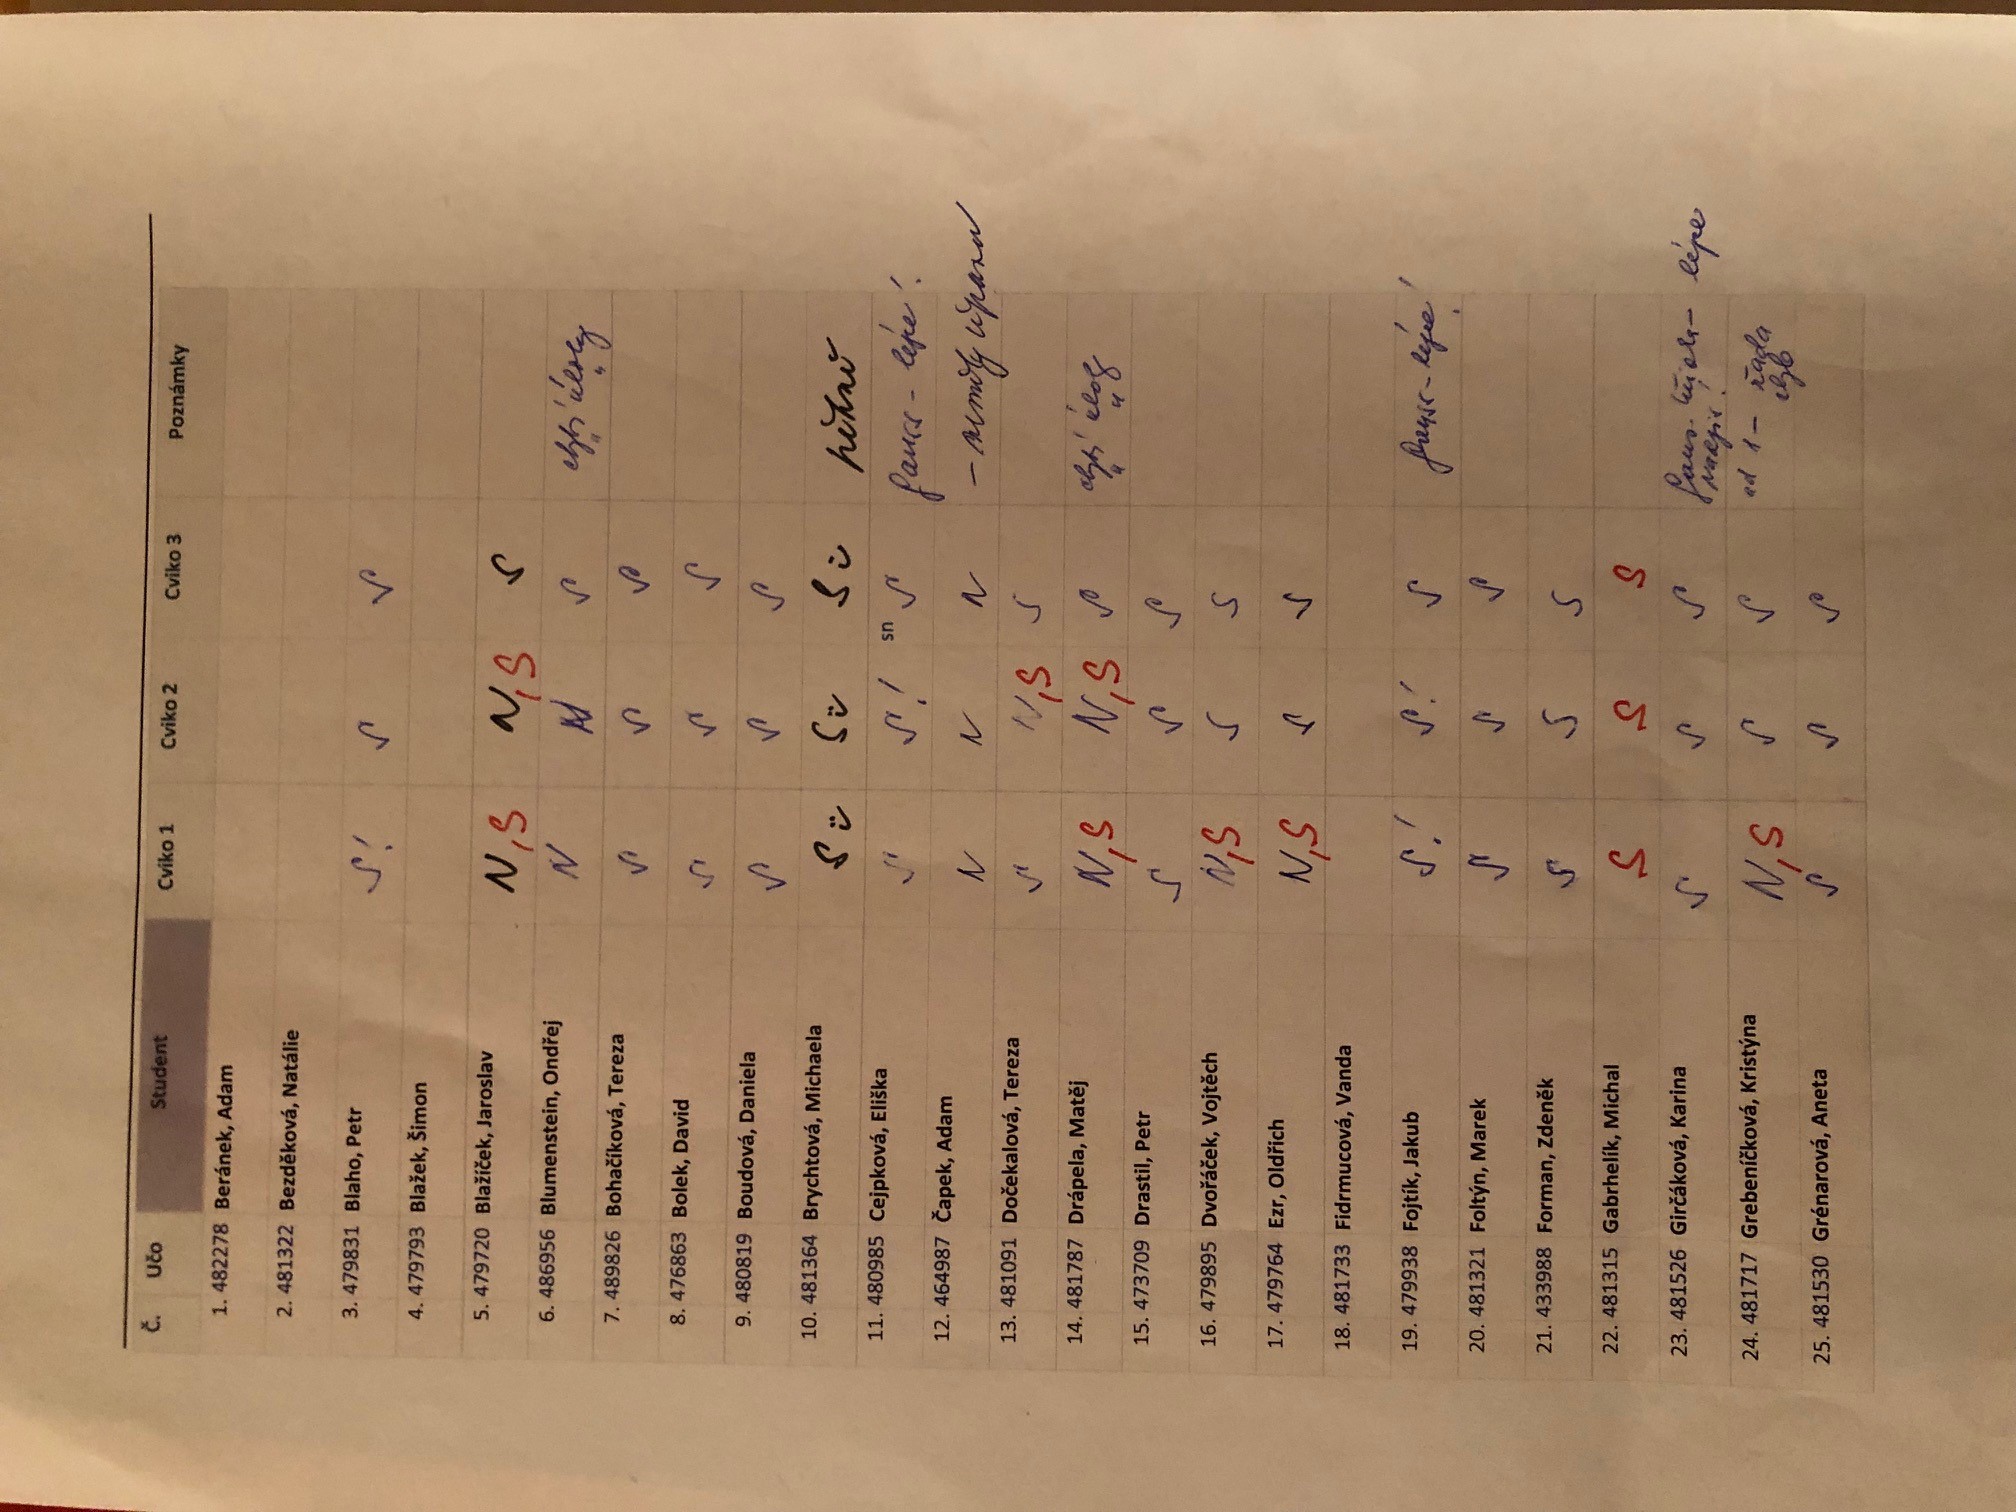 Č. Učo Student Cviko 1 Cviko 2 Cviko 3 Poznámky
1. 482278 Beránek, Adam
2. 481322 Bezděková, Natálie
3. 479831 Blaho, Petr S! S S
4. 479793 Blažek, Šimon
5. 479720 Blažíček, Jaroslav N,S N,S S
6. 486956 Blumenstein, Ondřej N N S chybí úlohy
7. 489826 Bohačíková, Tereza S S S
8. 476863 Bolek, David S S S
9. 480819 Boudová, Daniela S S S
10. 481364 Brychtová, Michaela S S S
11. 480985 Cejpková, Eliška S S! sn S - lépe!
12. 464987 Čapek, Adam N N N -
13. 481091 Dočekalová, Tereza S N,S S
14. 481787 Drápela, Matěj N,S N,S S chybí
15. 473709 Drastil, Petr S S S
16. 479895 Dvořáček, Vojtěch N,S S S
17. 479764 Ezr, Oldřich N,S S S
18. 481733 Fidrmucová, Vanda
19. 479938 Fojtík, Jakub S! S! S - lépe!
20. 481321 Foltýn, Marek S S S
21. 433988 Forman, Zdeněk S S S
22. 481315 Gabrhelík, Michal S S S
23. 481526 Girčáková, Karina S S S - lépe
24. 481717 Grebeníčková, Kristýna N,S S S od 1 - řada chyb
25. 481530 Grénarová, Aneta S S S